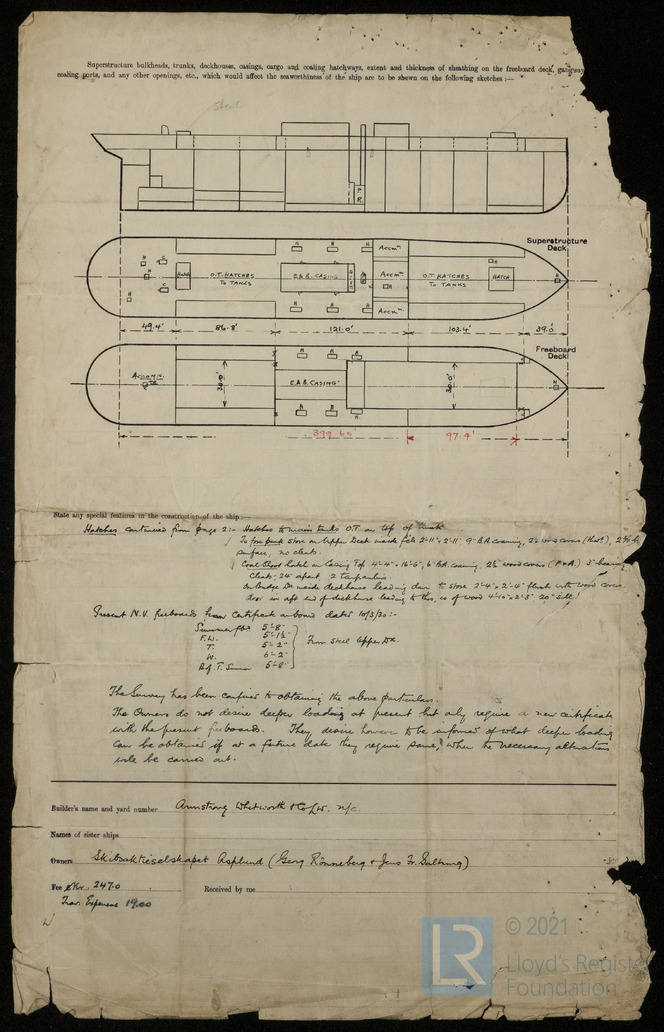 Superstructure bulkheads, trunks, deckhouses, casings, cargo and coaling hatchways, extent and thickness of sheathing on the freeboard deck, gangway
coaling ports, and any other openings, etc., which would affect the seaworthiness of the ship are to be shewn on the following sketches :—
P.R.
Superstructure
Deck
H H H Accmn
O.T. HATCHES
To TANKS
E.&B. CASING
Accmn
O.T. HATCHES
To TANKS
HATCH
H H H Accmn
49.4' 86.8' 121.0' 103.4' 39.0'
Freeboard
Deck
Accomm.
30.0'
E.&B. CASING
30.0'
H H H
399.65 97.4'
State any special features in the construction of the ship:—
Hatches continued from page 2:- Hatches to main tanks O.T. on top of trunk
To fore peak store on Upper Deck inside fcle 2'-11" x 2'-11" 9" B.A. coaming, 2½ wood covers
surface, no cleats.
Coal Shoot hatch on Casing Top 4'-4" x 16'-6", 6" B.A. coaming, 2½" wood covers (F & A) 3" bearing
Cleats 24" apart, 2 Tarpaulins.
On Bridge Dk inside deckhouse leading down to store 2'-4" x 2'-4" flush with wood cover
door in aft end of deckhouse leading to this, is of wood 4'-10" x 2'-3" 20" sill
Present N.V. freeboards from Certificate on board dated 10/3/20:-
Summer fbd 5'-8"
F.W. 5'-1½"
T. 5'-2"
W. 6'-2"
5'-8"
From Steel Upper Dk.
The Survey has been confined to obtaining the above particulars.
The Owners do not desire deeper loading at present but only require a new certificate
with the present freeboards. They desire however to be informed of what deeper loading
can be obtained if at a future date they require same, when the necessary alterations
will be carried out.
Builder's name and yard number Armstrong Whitworth & Co Ld N/C.
Names of sister ships
Owners Skibsaktieselskapet Asplund (Georg Rönneberg & Jens Fr. Galtung)
Fee Kr. 247.0 Received by me
Trav. Expenses 19.00
LR
© 2021
Lloyd's Register
Foundation